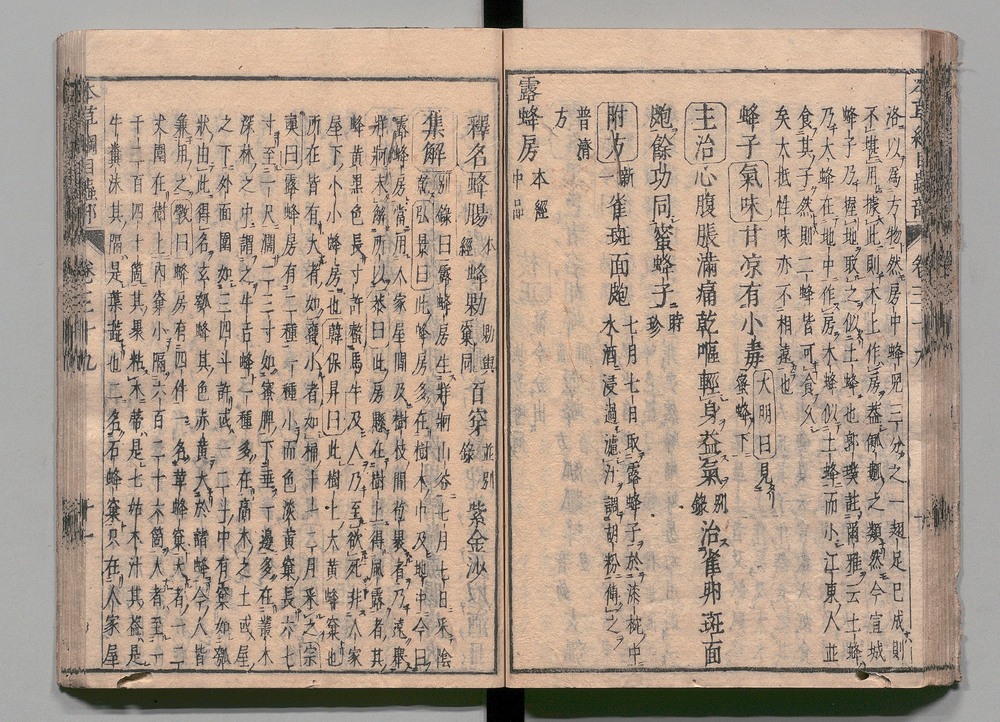 洛以爲方物然房中蜂兒三分之一翅足已成則
不堪用據此則木上作房蓋䫉瓠之類然今宣城
蜂子乃掘地取之似土蜂也郭璞註爾雅云土蜂
乃大蜂在地中作房木蜂似土蜂而小江東人並
食其子然則二蜂皆可食久
矣大抵性味亦不相遠也
蜂子氣味甘凉有小毒大明曰見蜜蜂下
主治心腹脹滿痛乾嘔輕身益氣別錄治雀卵斑面
皰餘功同蜜蜂子時珍
附方新一雀斑面皰七月七日取露蜂子於漆椀中水酒浸過濾汁調胡粉傅之
普濟方
露蜂房本經中品
釋名蜂腸本經蜂𠡠𠡠與窠同百穿並別錄紫金沙
集解別錄曰露蜂房生牂牁山谷七月七日采陰
乾弘景曰此蜂房多在樹木中及地中今曰
露蜂房當用人家屋間及樹枝間苞裹者乃遠舉
牂牁未解所以恭曰此房懸在樹上得風露者其
蜂黃黑色長寸許螫馬牛及人乃至欲死非人家
屋下小小蜂房也韓保昇曰此樹上大黃蜂窠也
所在皆有大者如甕小者如桶十一二月采之宗
奭曰露蜂房有二種一種小而色淡黃窠長六七
寸至一尺濶二三寸如蜜脾下垂一邊多在叢木
深林之中謂之牛舌蜂一種多在高木之上或屋
之下外面圍如三四斗許或一二斗中有窠如瓠
狀由此得名玄瓠蜂其色赤黃大於諸蜂今人皆
兼用之斅曰蜂房有四件一名革蜂窠大者一二
丈圍在樹上內窠小隔六百二十六箇大者至一
千二百四十箇其裹粘木蒂是七姑木汁其蓋是
牛糞沫其隔是葉蕋也二名石蜂窠只在人家屋
本草綱目蟲部
卷三十九